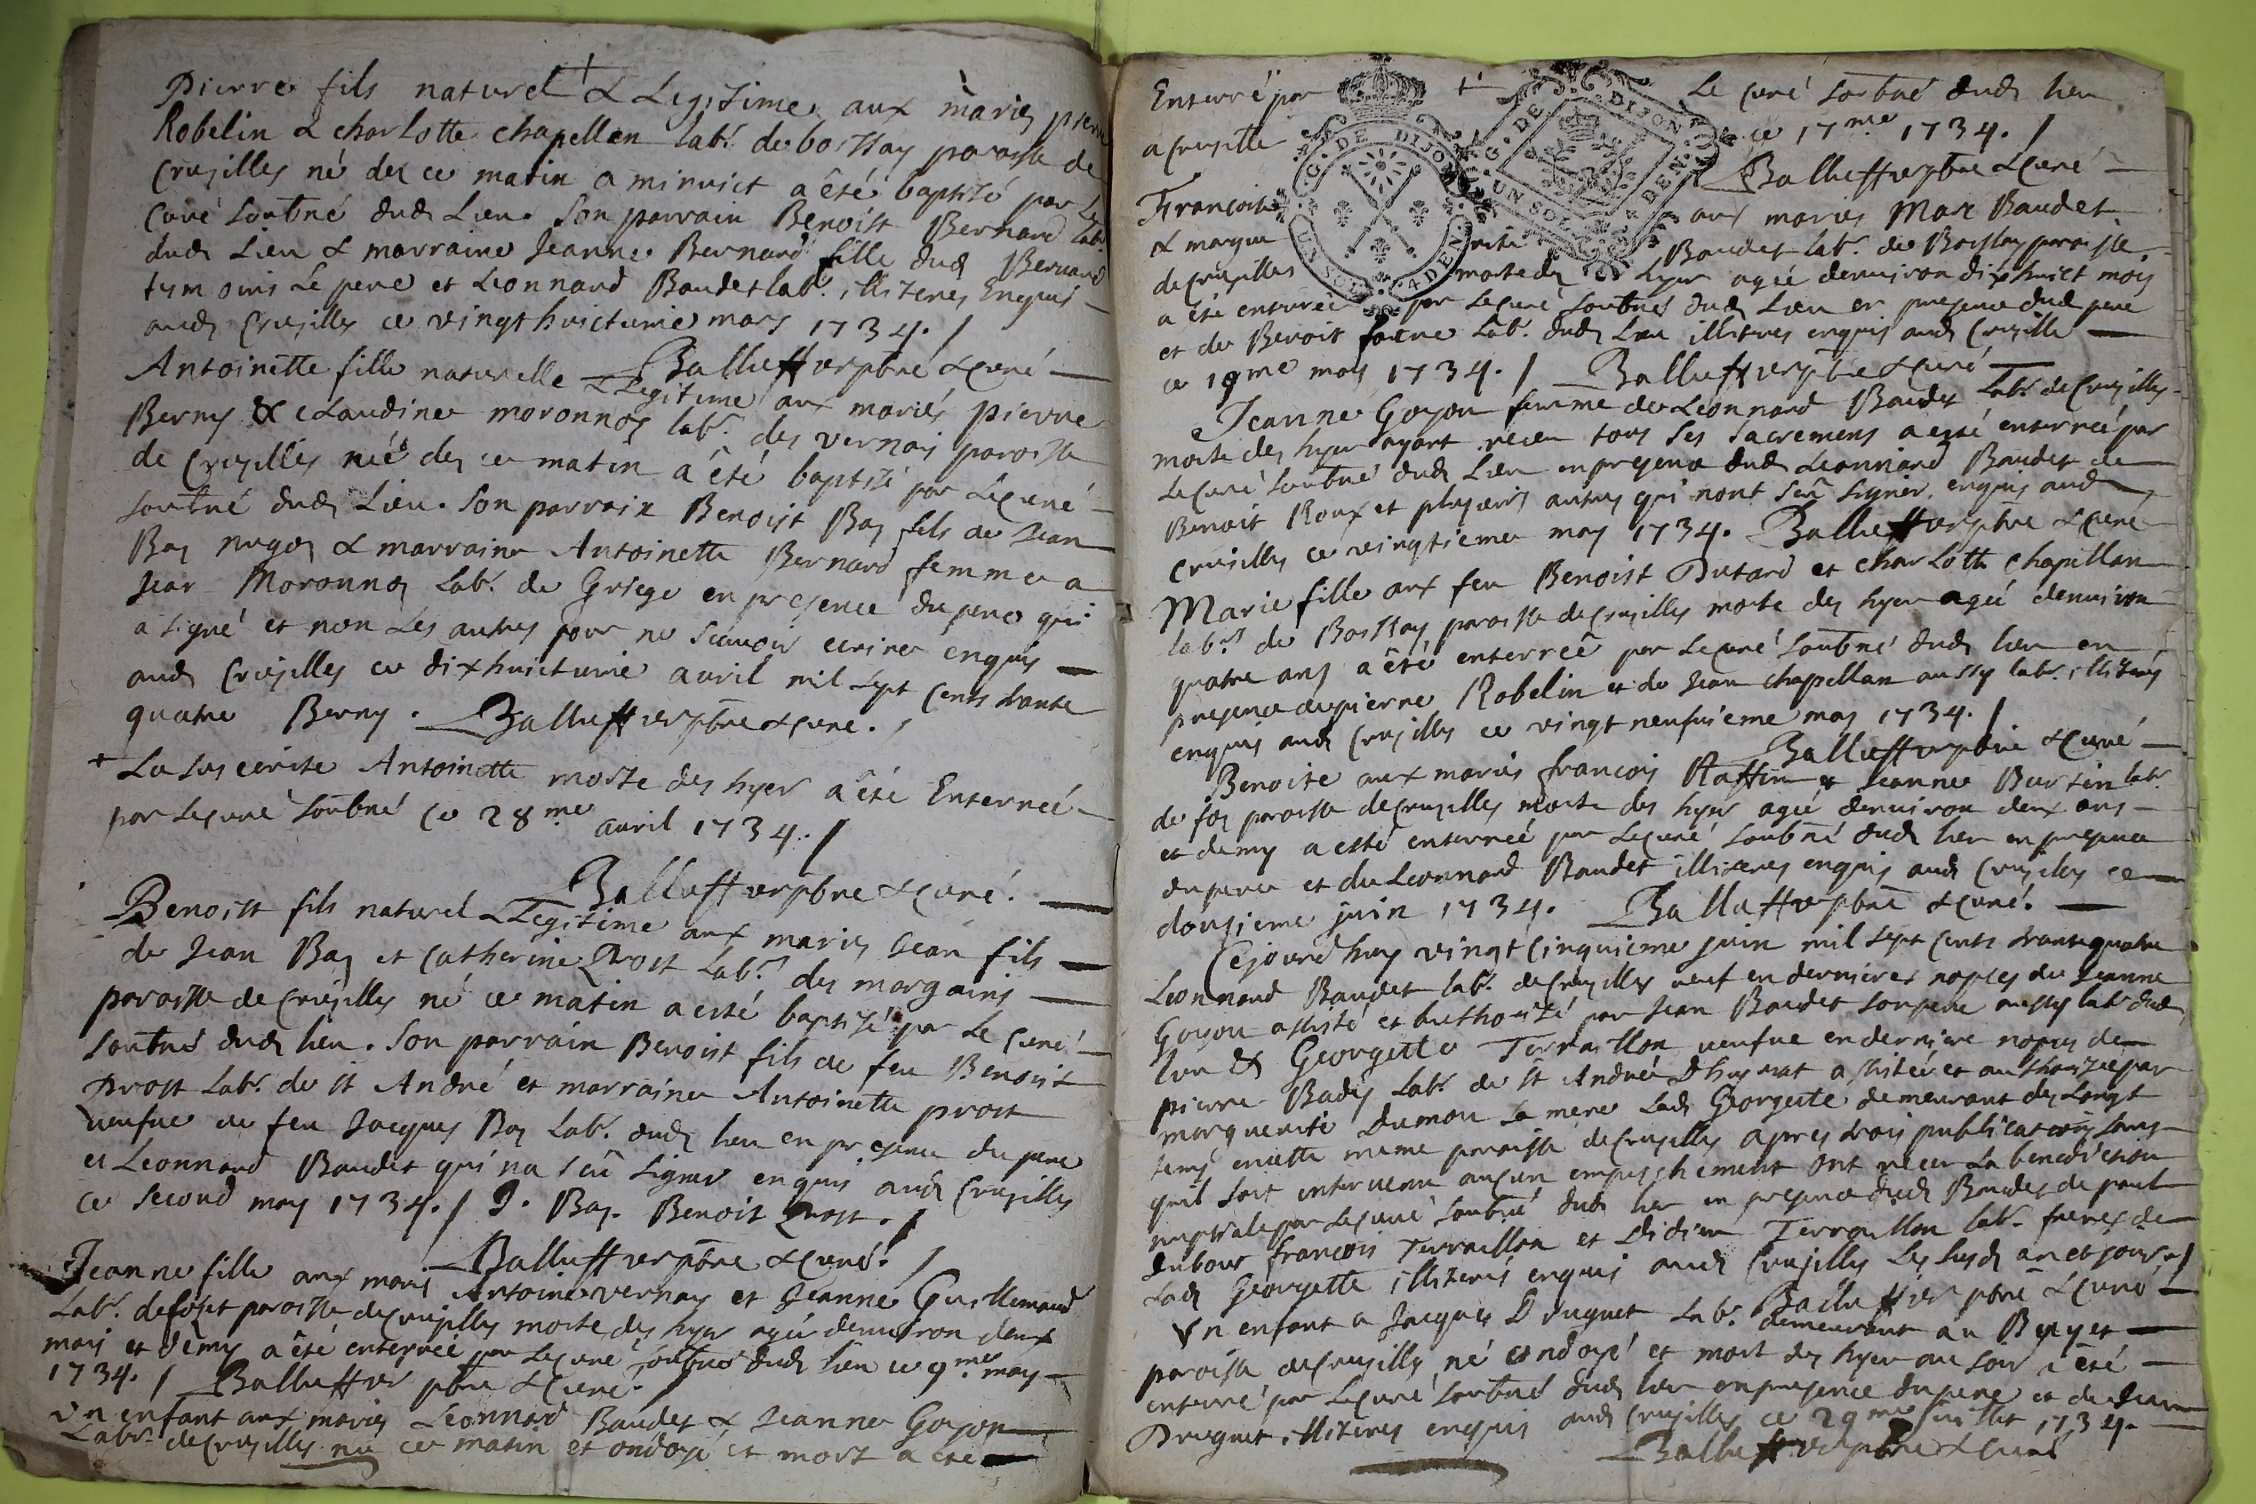 Pierre fils naturel & Legitime aux mariés pierre
Robelin & charlotte chapellan lab.r de bossay paroisse de
Crusilles né dez ce matin a minuict a été baptisé par le
Curé soubné dud. Lieu. Son parrain Benoist Bernard lab.r
dud. Lieu & marraine Jeanne Bernard fille dud. Bernard
tesmoins le pere et Leonnard Baudet lab.r illiteres Enquis
aud. Crusilles ce vingt huictieme mars 1734. /
Balluffier pbre & curé
Antoinette fille naturelle & Legitime aux mariés pierre
Berny & claudine moronnoz lab.r des vernais paroisse
de Crusilles née dez ce matin a été baptisé par Le Curé
soubné dud. Lieu. Son parrain Benoist Baz fils de Jean
Baz & marraine Antoinette Bernard femme a
Jean Moronnoz Lab.r de Griege en presence du pere qui
a signé et non Les autres pour ne scavoir ecrire enquis
aud. Crusilles ce dix huictieme avril mil sept cents trante
quatre Berny. Balluffier pbre & curé. /
+ La susecrite Antoinette morte dez hyer a été Enterrée
par Le curé soubné ce 28.me avril 1734. /
Balluffier pbre & curé.
Benoist fils naturel & Legitime aux mariés Jean fils
de Jean Baz et Catherine Prost Lab.rs des margains
paroisse de Crusilles né ce matin a esté baptisé par Le Curé
soubné dud. lieu. Son parrain Benoist fils de feu Benoist
Prost Lab.r de St André et marraine Antoinette prost
veufue de feu Jacques Baz Lab.r dud. lieu en presence du pere
et Leonnard Baudet qui na scû signer enquis aud. Crusilles
ce second may 1734. / J. Baz. Benoit Prost. /
Balluffier pbre & curé. /
Jeanne fille aux mariés Antoine vernay et Jeanne Guillemaud
Lab.r de paroisse de Crusilles morte dez hyer agée denuiron deux
mois et demy a été enterrée par Le curé soubné dud. lieu ce 9.me may
1734. / Balluffier pbre & Curé. /
Vn enfant aux mariés Leonnard Baudet & Jeanne Goyon
Lab.rs de Crusilles né ce matin et ondoyé et mort a été
Enterré par Le curé soubné dud. lieu
a Crusille ce 17.me 1734. /
Balluffier pbre & Curé
Françoise aux mariés Marc Baudet
& marguerite Baudet lab.r de Bossay paroisse
de Crusilles morte dez hyer agée denuiron dix huict mois
a été enterrée par Le Curé soubné dud. Lieu en presence dud. pere
et de Benoit Lab.r dud. Lieu illiteres enquis aud. Crusille
ce 19me may 1734. / Balluffier pbre & curé
Jeanne Goyon femme de Leonnard Baudet Lab.r de Crusilles
morte dez hyer ayant receu tous ses sacremens a esté enterrée par
Le Curé soubné dud. Lieu en presence dud. Leonnard Baudet de
Benoit Roux et plusieurs autres qui nont scû signer enquis aud.
Crusilles ce vingtieme may 1734. Balluffier pbre & curé
Marie fille aux feu Benoist Dutard et charlotte chapellan
lab.rs de Bossay paroisse de Crusilles morte dez hyer agée denuiron
quatre ans a été enterrée par Le curé soubné dud. lieu en
presence de pierre Robelin et de Jean chapellan aussy lab.r illiterés
enquis aud. Crusilles ce vingt neufuieme may 1734. /
Balluffier pbre & Curé
Benoite aux mariés françois Raffin & Jeanne Burtin lab.r
de foz paroisse de Crusilles morte dez hyer agée denuiron deux ans
et demy a esté enterrée par Le curé soubné dud. lieu en presence
du pere et du Leonnard Baudet illiteres enquis aud. Crusilles ce
douzieme juin 1734. Balluffier pbre & curé.
Cejourdhuy vingt cinquieme juin mil sept cents trante quatre
Leonnard Baudet lab.r de Crusilles veuf en dernieres nopces de Jeanne
Goyon assisté et authorisé par Jean Baudet son pere aussy lab.r dud.
lieu & Georgette Terraillon veufue en derniere nopces de
pierre Badey Lab.r de St André Dhuyriat assistée et authorisée par
marguerite Dumou sa mere Lad. Georgette demeurant dez Longt
tems en cette meme paroisse de Crusilles apres trois publications sans
quil soit intervenu aucun empeschement ont receu La benediction
nuptiale par Le curé soubné dud. lieu en presence dud. Baudet de paul
Dubour françois Terraillon et Didier Terraillon lab.r freres de
Lad. Georgette illiterés enquis aud. Crusilles Les susd. an et jour. /
Balluffier pbre & Curé
Vn enfant a Jacques Druguet Lab.r demeurant au Buyet
paroisse de Crusilly né ondoyé et mort dez hyer au soir a été
enterré par Le curé soubné dud. lieu en presence du pere et de Jean
Druguet illiteres enquis aud. Crusilles ce 29me juillet 1734.
Balluffier pbre & curé
G. DE DIJON
UN SOL 4 DEN.
G. DE DIJON
UN SOL 4 DEN.